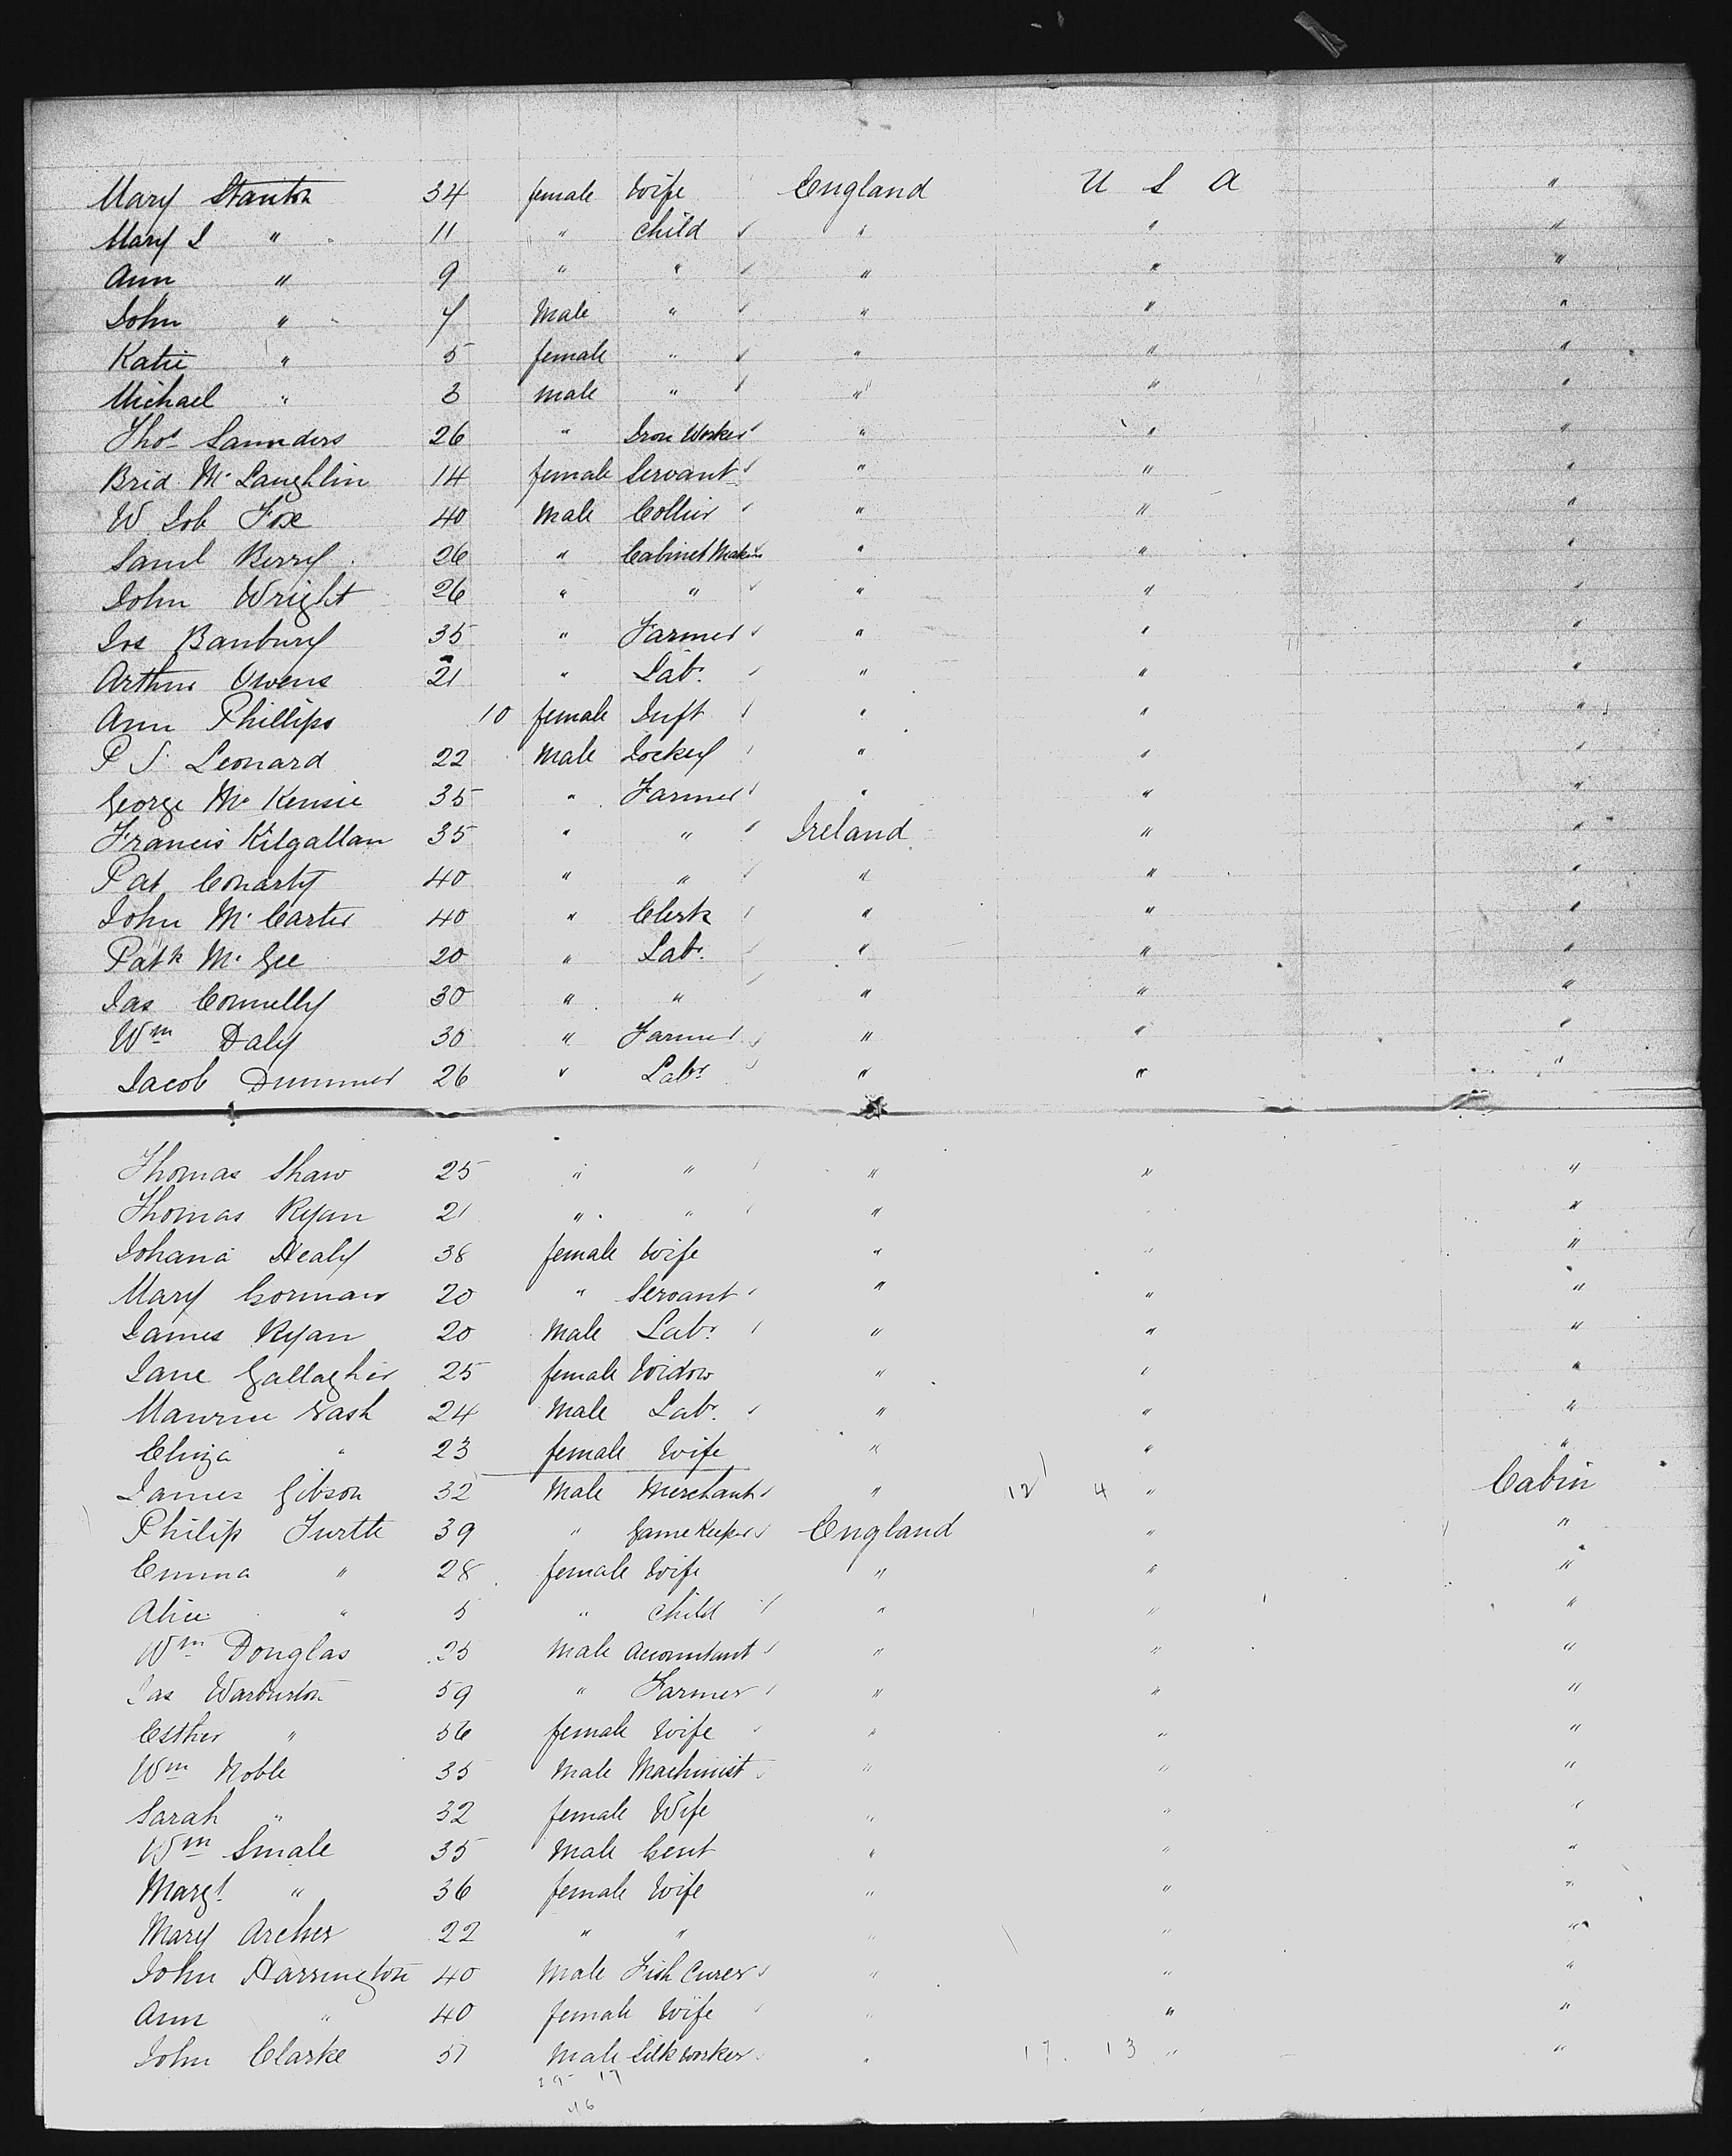 Mary Stanton 34 female Wife England U S A "
Mary J " 11 " Child " " "
Ann " 9 " " " " "
John " 7 Male " " " "
Katie " 5 female " " " "
Michael " 3 male " " " "
Thos Saunders 26 " Iron Worker " " "
Brid McLaughlin 14 female Servant " " "
W Job Fox 40 Male Collier " " "
Saml Berry 26 " Cabinet Maker " " "
John Wright 26 " " " " "
Jos Banbury 35 " Farmer " " "
Arthur Owens 21 " Labr " " "
Ann Phillips 10 female Inft " " "
P J Leonard 22 Male Jockey " " "
George McKensie 35 " Farmer " " "
Francis Kilgallan 35 " " Ireland " "
Pat Conarty 40 " " " " "
John McCarter 40 " Clerk " " "
Patk McGee 20 " Labr " " "
Jas Connelly 30 " " " " "
Wm Daly 30 " Farmer " " "
Jacob Dummer 26 " Labr " " "
Thomas Shaw 25 " " " " "
Thomas Ryan 21 " " " " "
Johana Healy 38 female Wife " " "
Mary Gorman 20 " Servant " " "
James Ryan 20 Male Labr " " "
Jane Gallagher 25 female Widow " " "
Maurice Nash 24 Male Labr " " "
Eliza " 23 female Wife " " "
James Gibson 32 Male Merchant " 12 4 " Cabin
Philip Turtle 39 " Game Keeper England " "
Emma " 28 female Wife " " "
Alice " 5 " Child " " "
Wm Douglas 25 Male Accountant " " "
Jas Warburton 59 " Farmer " " "
Esther " 56 female Wife " " "
Wm Noble 35 Male Machinist " " "
Sarah " 32 female Wife " " "
Wm Smale 35 Male Gent " " "
Margt " 36 female Wife " " "
Mary Archer 22 " " " " "
John Harrington 40 Male Fish Curer " " "
Ann " 40 female Wife " " "
John Clarke 51 Male Silk Worker " 17. 13 " "
17